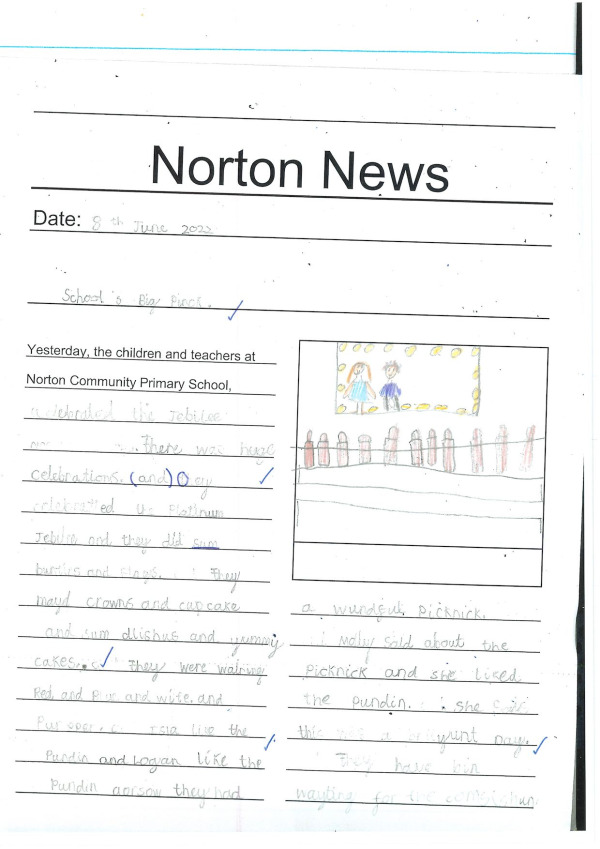 Norton News
Date: 8th June 2022
School's Big Pinck.
Yesterday, the children and teachers at
Norton Community Primary School,
celebrated the Jebilee
There was huge
celebrations. (and) They
celebratted Platinum
Jebilee and they did sum
bunties and flags. They
mayd crowns and cupcake
and sum dlishus and yummy
cakes. They were wairing
Red and and wite and
like the
Pundin and Logan like the
Pundin aorsow they had
a wundful picknick.
said about the
Picknick and she liced
the pundin. she
this was a Day.
They have bin
wayting for the